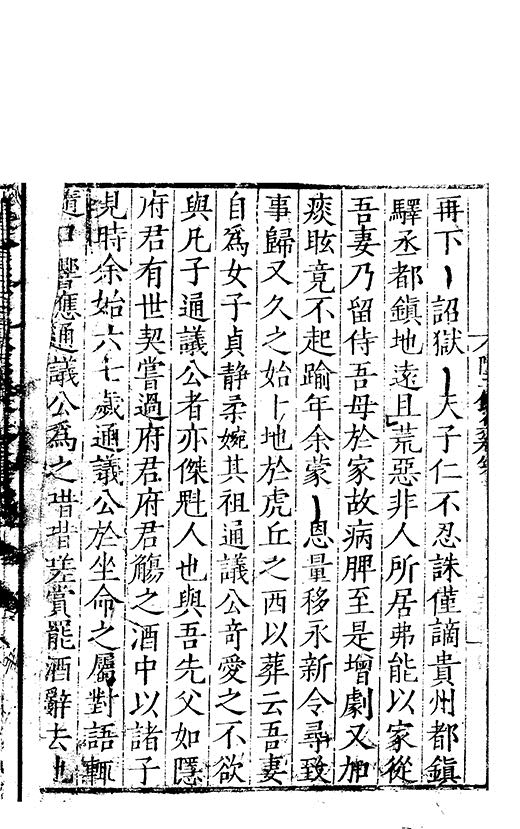 再下詔獄天子仁不忍誅僅謫貴州都鎮
驛丞都鎮地遠且荒惡非人所居弗能以家從
吾妻乃留侍吾母於家故病脾至是增劇又加
痰眩竟不起踰年余蒙恩量移永新令尋致
事歸又久之始卜地於虎丘之西以葬云吾妻
自為女子貞静柔婉其祖通議公奇愛之不欲
與凡子通議公者亦傑魁人也與吾先父如隱
府君有世契嘗過府君府君觴之酒中以諸子
見時余始六七歲通議公於坐命之屬對語輒
隨口響應通議公為之唶唶嗟賞罷酒辭去